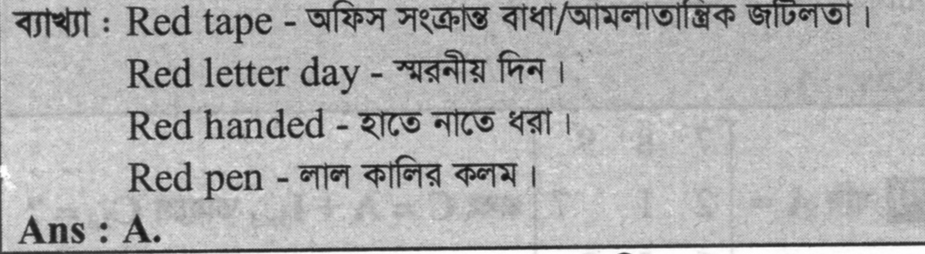 ব্যাখ্যা : Red tape - অফিস সংক্রান্ত বাধা/আমলাতান্ত্রিক জটিলতা।
Red letter day - স্মরনীয় দিন।
Red handed - হাতে নাতে ধরা।
Red pen - লাল কালির কলম।
Ans : A.